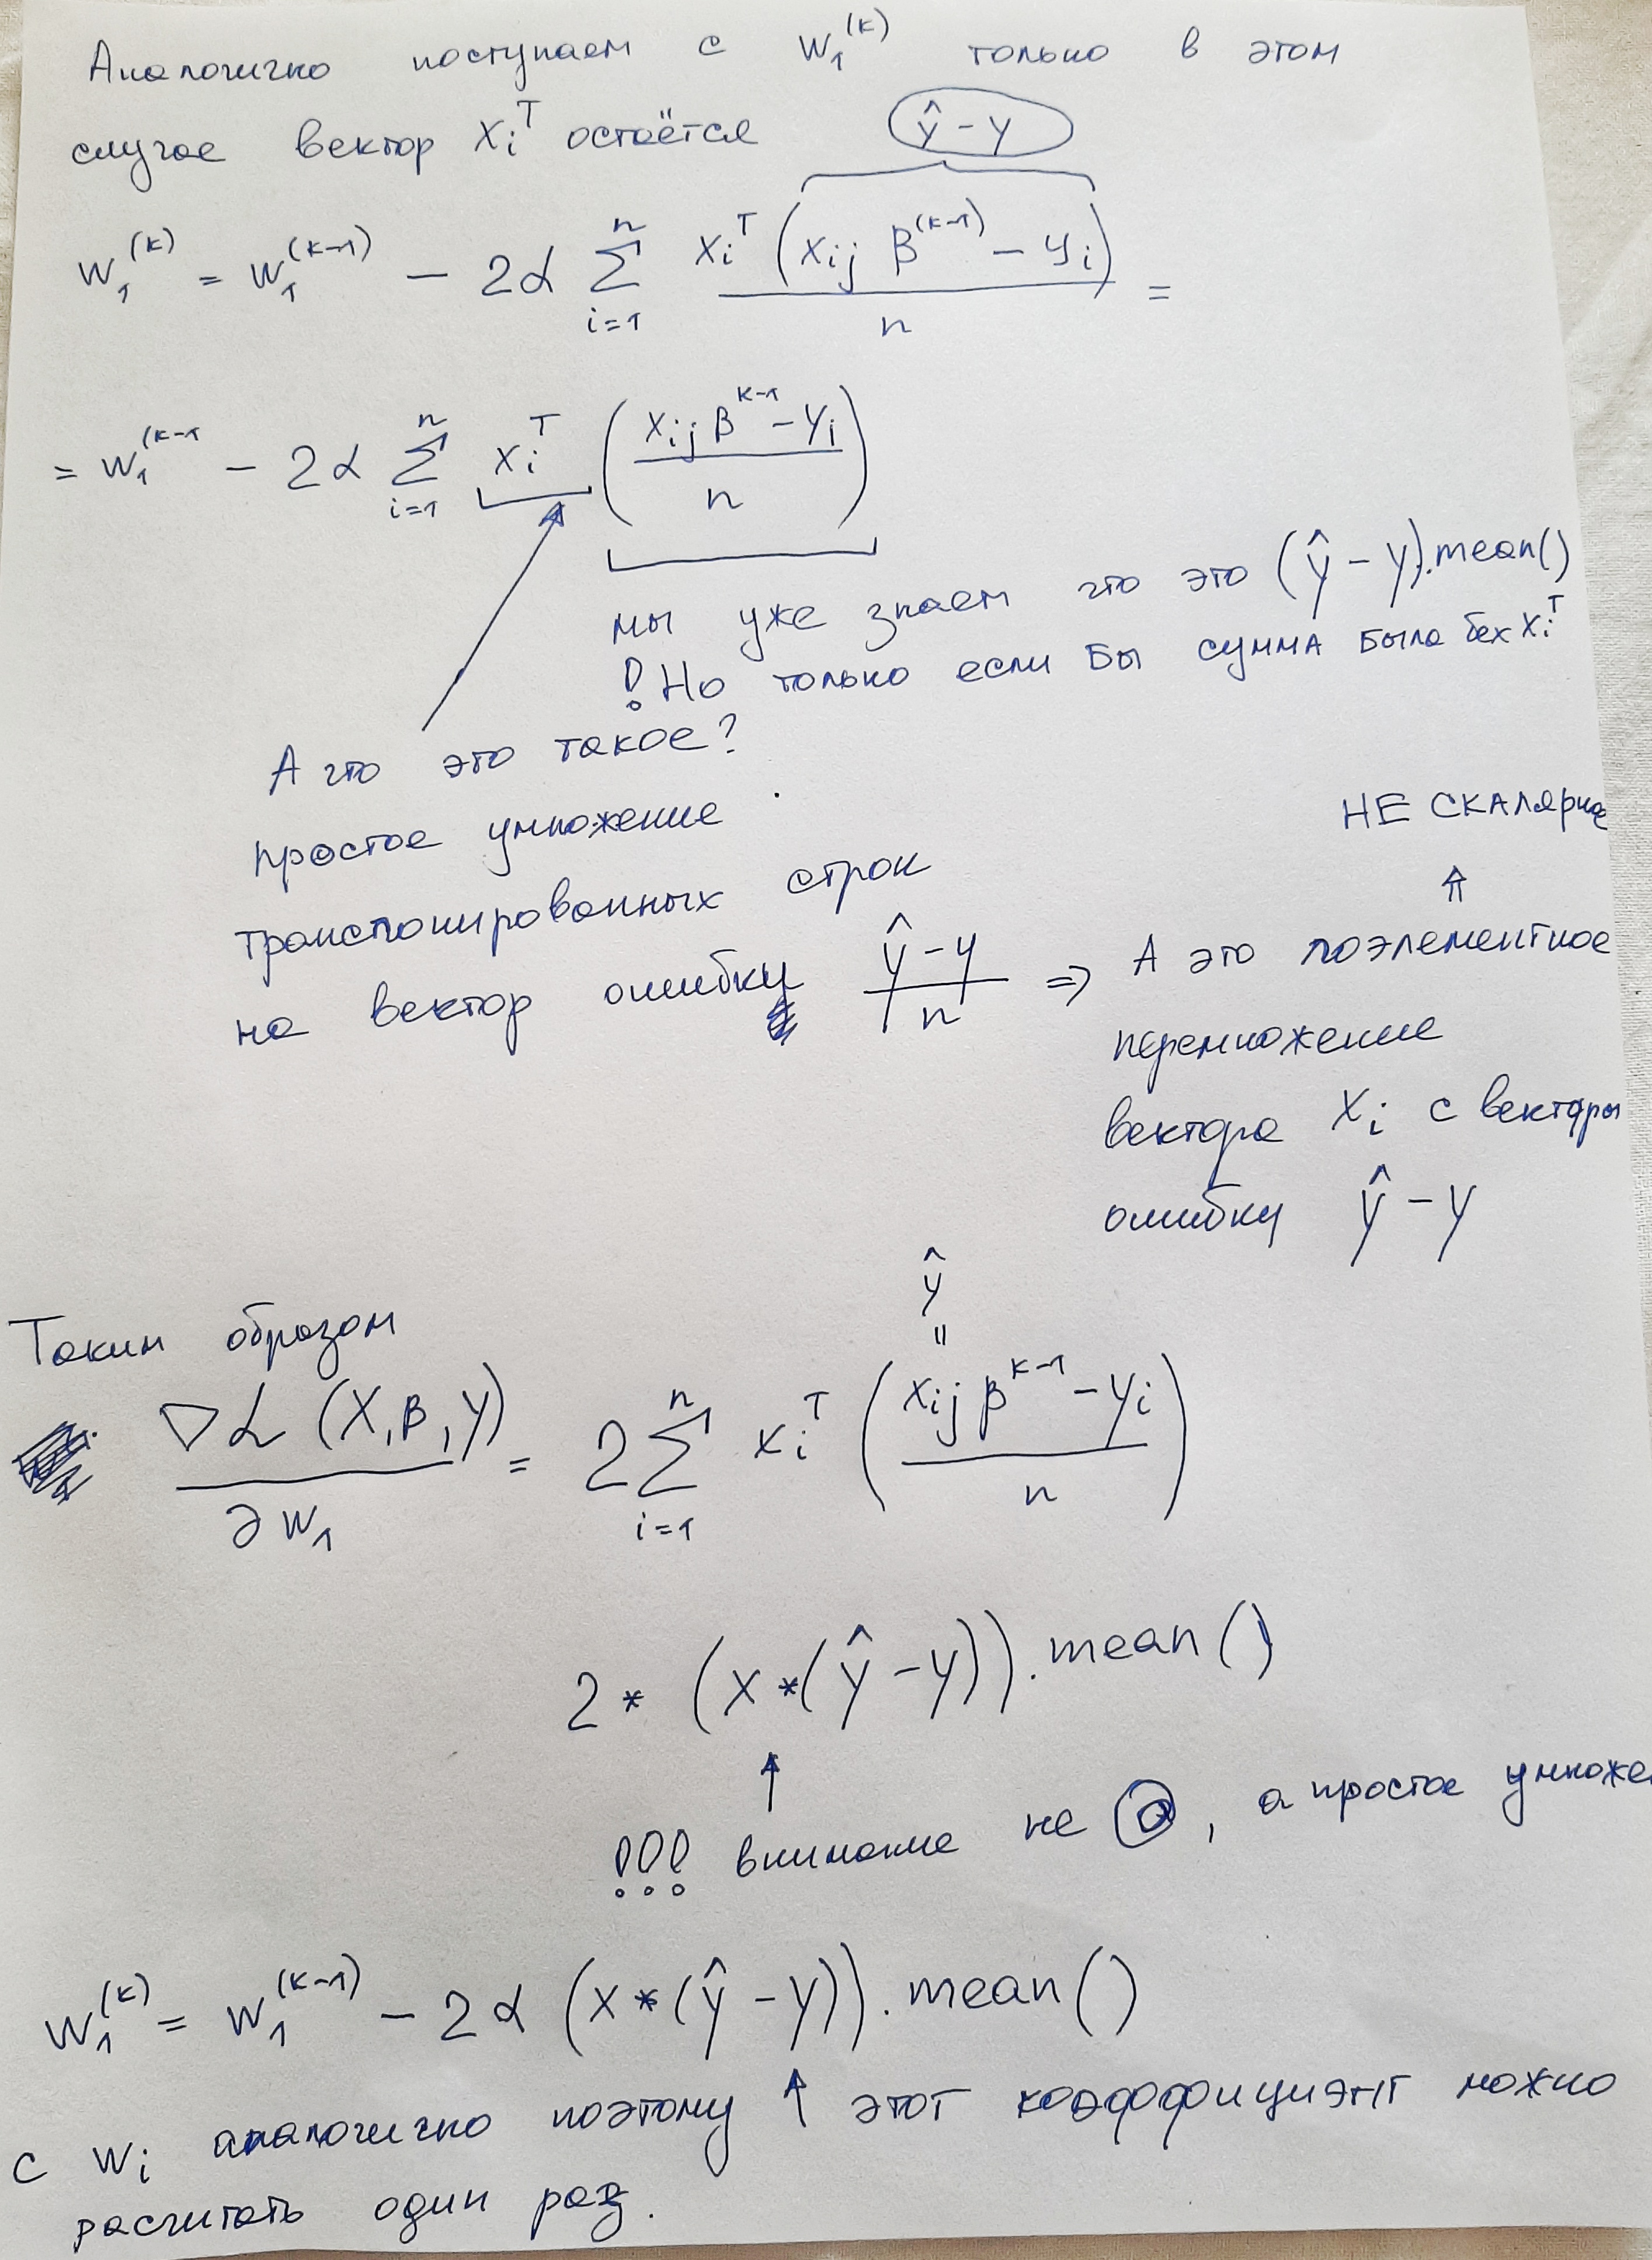 Аналогично поступаем с w₁^(k) только в этом
случае вектор xᵢ^T остаётся
ŷ - y
w₁^(k) = w₁^(k-1) - 2α ∑_{i=1}^{n} xᵢ^T (xᵢⱼ β^(k-1) - yᵢ) / n =
= w₁^(k-1 - 2α ∑_{i=1}^{n} xᵢ^T ((xᵢⱼ β^k-1 - yᵢ) / n)
мы уже знаем что это (ŷ - y).mean()
! Но только если бы сумма была бех xᵢ^T
А что это такое?
простое умножение
транспонированных строк
на вектор ошибку (ŷ - y) / n ⇒
НЕ СКАЛЯРНОЕ
⇑
А это поэлементное
перемножение
вектора xᵢ с векторы
ошибку ŷ - y
Таким образом
ŷ
=
∇L (X, β, y) / ∂w₁ = 2 ∑_{i=1}^{n} xᵢ^T ((xᵢⱼ β^k-1 - yᵢ) / n)
2 * (x * (ŷ - y)).mean()
↑
!!! внимание не @, а простое умноже
w₁^(k) = w₁^(k-1) - 2α (x * (ŷ - y)).mean()
с wᵢ аналогично поэтому ↑ этот коэффициэнт можно
расчитать один раз.